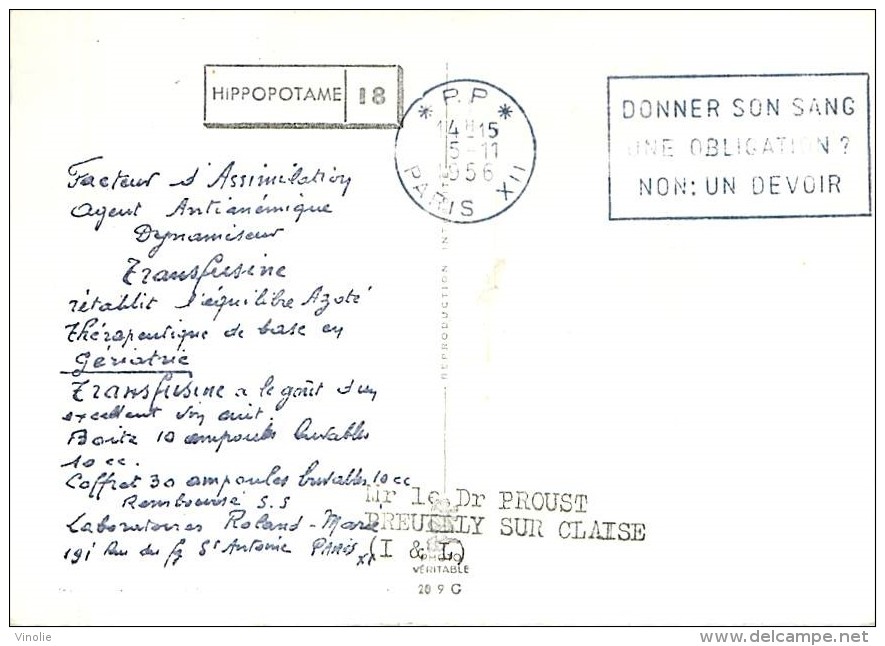 HIPPOPOTAME 18
* P.P *
14 H 15
5-11
1956
PARIS XII
DONNER SON SANG
UNE OBLIGATION ?
NON: UN DEVOIR
Facteur d'Assimilation
Agent Antianémique
Dynamiseur
Transfusine
rétablit l'équilibre Azoté
Thérapeutique de base en
Gériatrie
Transfusine a le goût d'un
excellent vin cuit.
Boite 10 ampoules buvables
10 cc.
Coffret 30 ampoules buvables 10 cc
Remboursé S.S
Laboratoires Roland-Marie
191 Rue du fg St Antoine PARIS XI
REPRODUCTION
Mr le Dr PROUST
PREUILLY SUR CLAISE
(I & L)
VÉRITABLE
20 9 G
Vinolie
www.delcampe.net